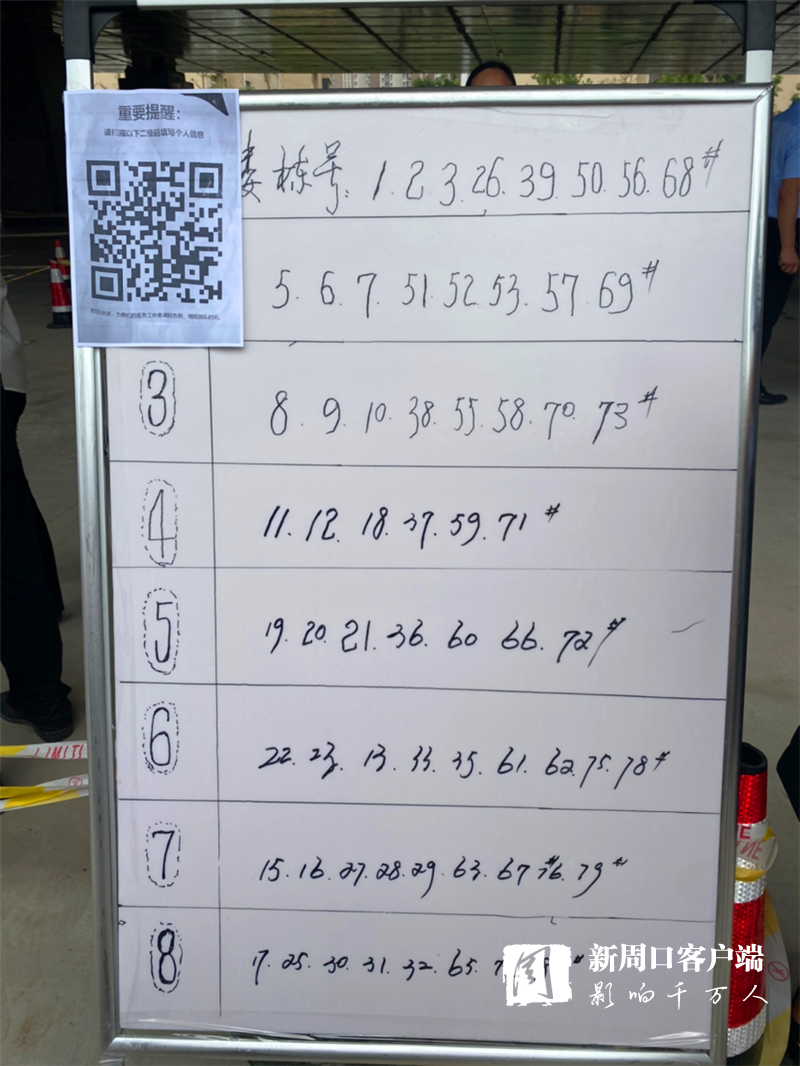 重要提醒：
请扫描以下二维码填写个人信息
楼栋号: 1. 2. 3. 26. 39. 50. 56. 68#
5. 6. 7. 51. 52. 53. 57. 69#
3 8. 9. 10. 38. 55. 58. 70. 73#
4 11. 12. 18. 37. 59. 71#
5 19. 20. 21. 36. 60 66. 72#
6 22. 23. 13. 33. 35. 61. 62. 75. 78#
7 15. 16. 27. 28. 29. 63. 67# 76. 79#
8 17. 25. 30. 31. 32. 65.
新周口客户端
影响千万人